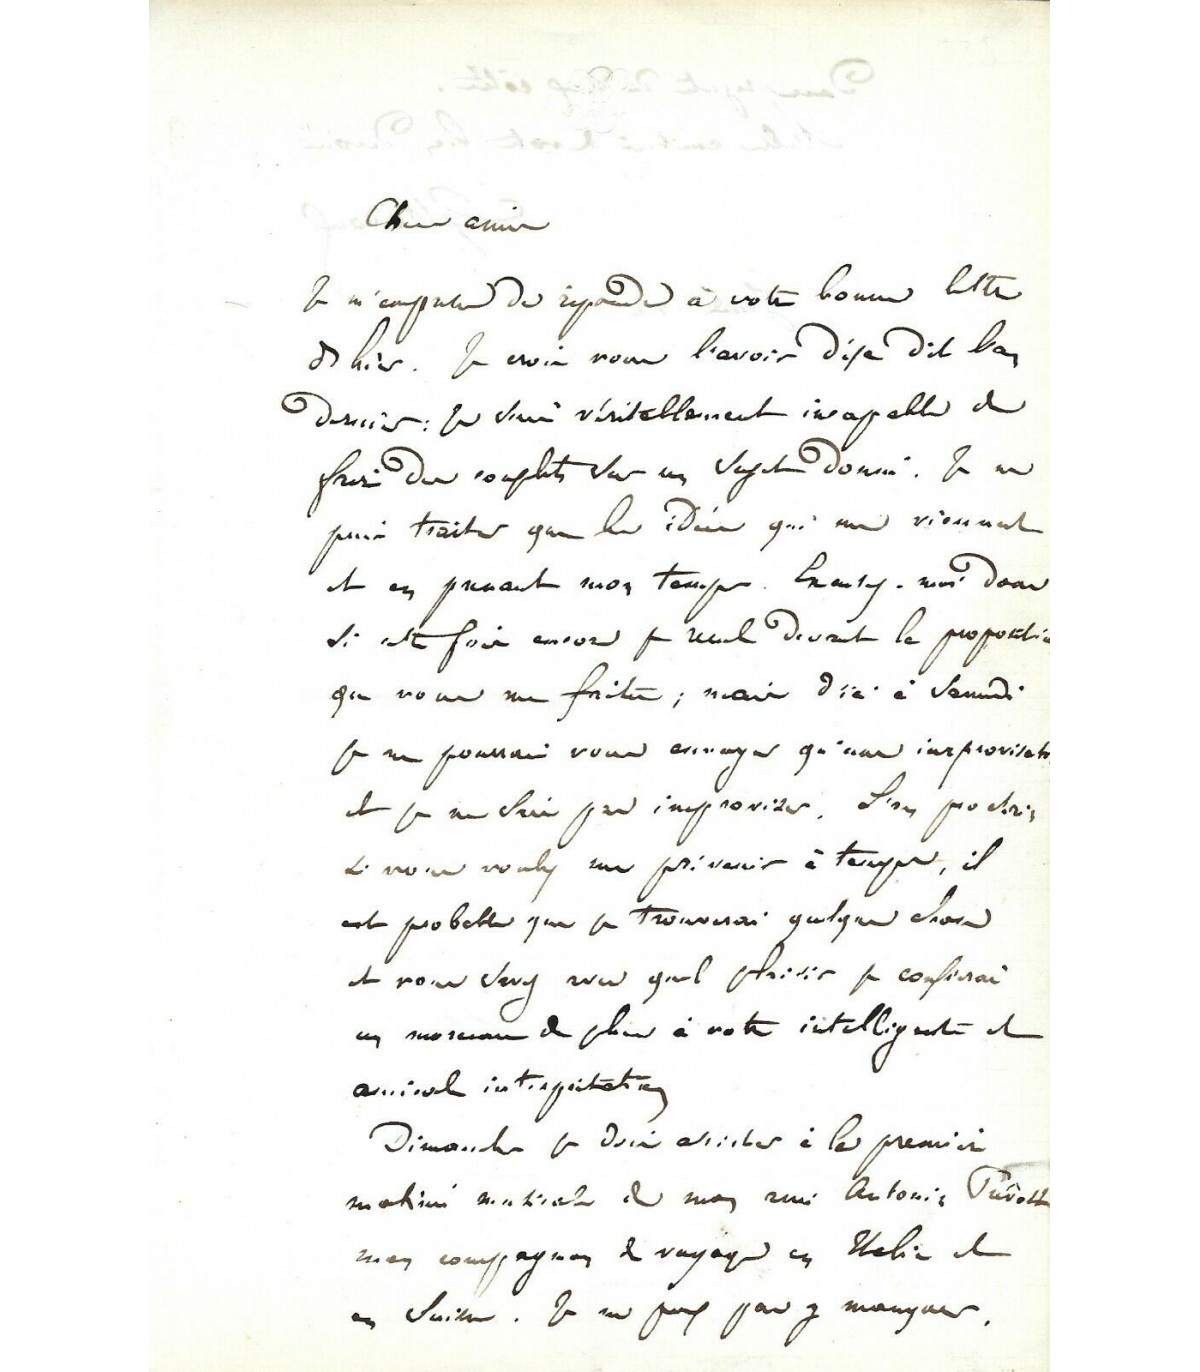 Cher ami
Je m'empresse de répondre à votre bonne lettre
d'hier. Je crois vous l'avoir déjà dit l'an
dernier : je suis véritablement incapable de
faire des couplets sur un sujet donné. Je ne
puis traiter que les idées qui me viennent
et en prenant mon temps. Excusez-moi donc
si cette fois encore je recule devant la propositio
que vous me faites ; mais d'ici à Samedi
je ne pourrais vous envoyer qu'une improvisati
et je ne sais pas improviser. L'an prochain
si vous voulez me prévenir à temps, il
est probable que je trouverai quelque chose
et vous savez avec quel plaisir je confierai
un morceau de plus à votre intelligente et
amicale interprétation
Dimanche je dois assister à la première
matinée musicale de mon ami Antonin
mon compagnon de voyage en Italie et
en Suisse. Je ne puis pas y manquer.